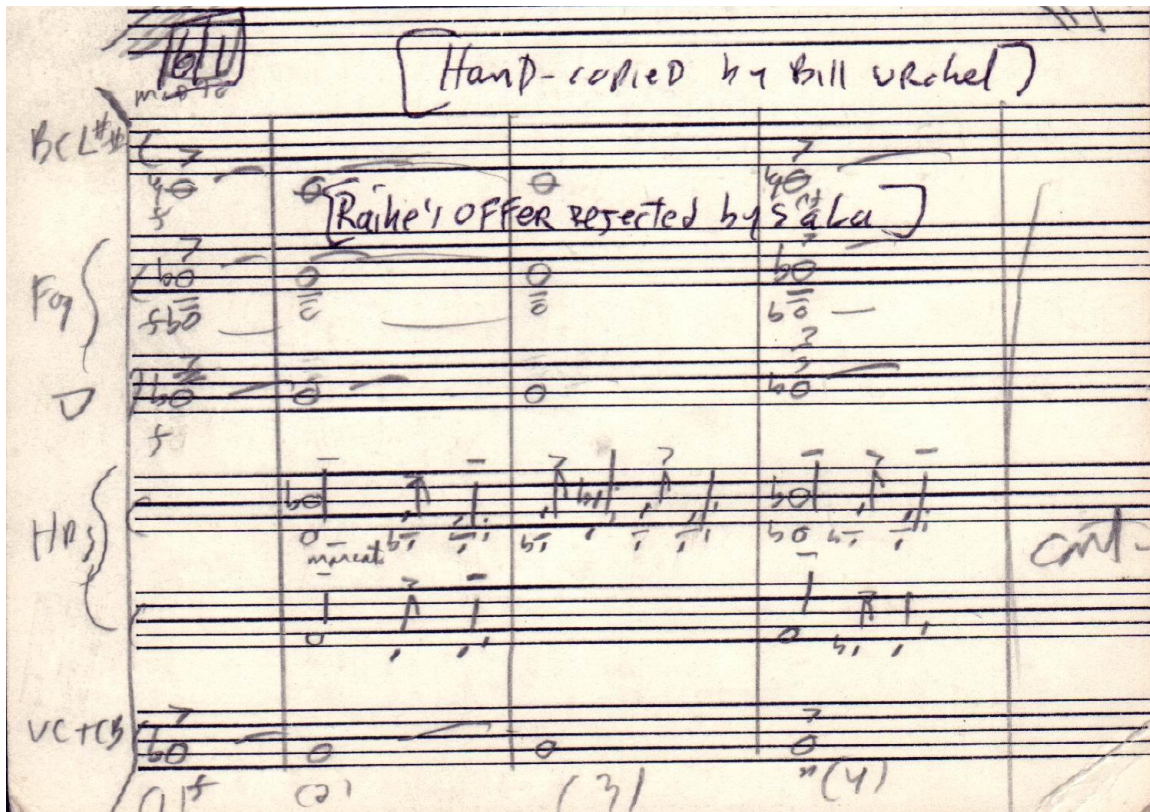 [Hand-copied by Bill Wrobel]
BCL
[Raike's OFFER rejected by Saka]
f
Fag
f
f
HRs
marcato
cont.
VC+CB
f
(1) (2) (3) (4)